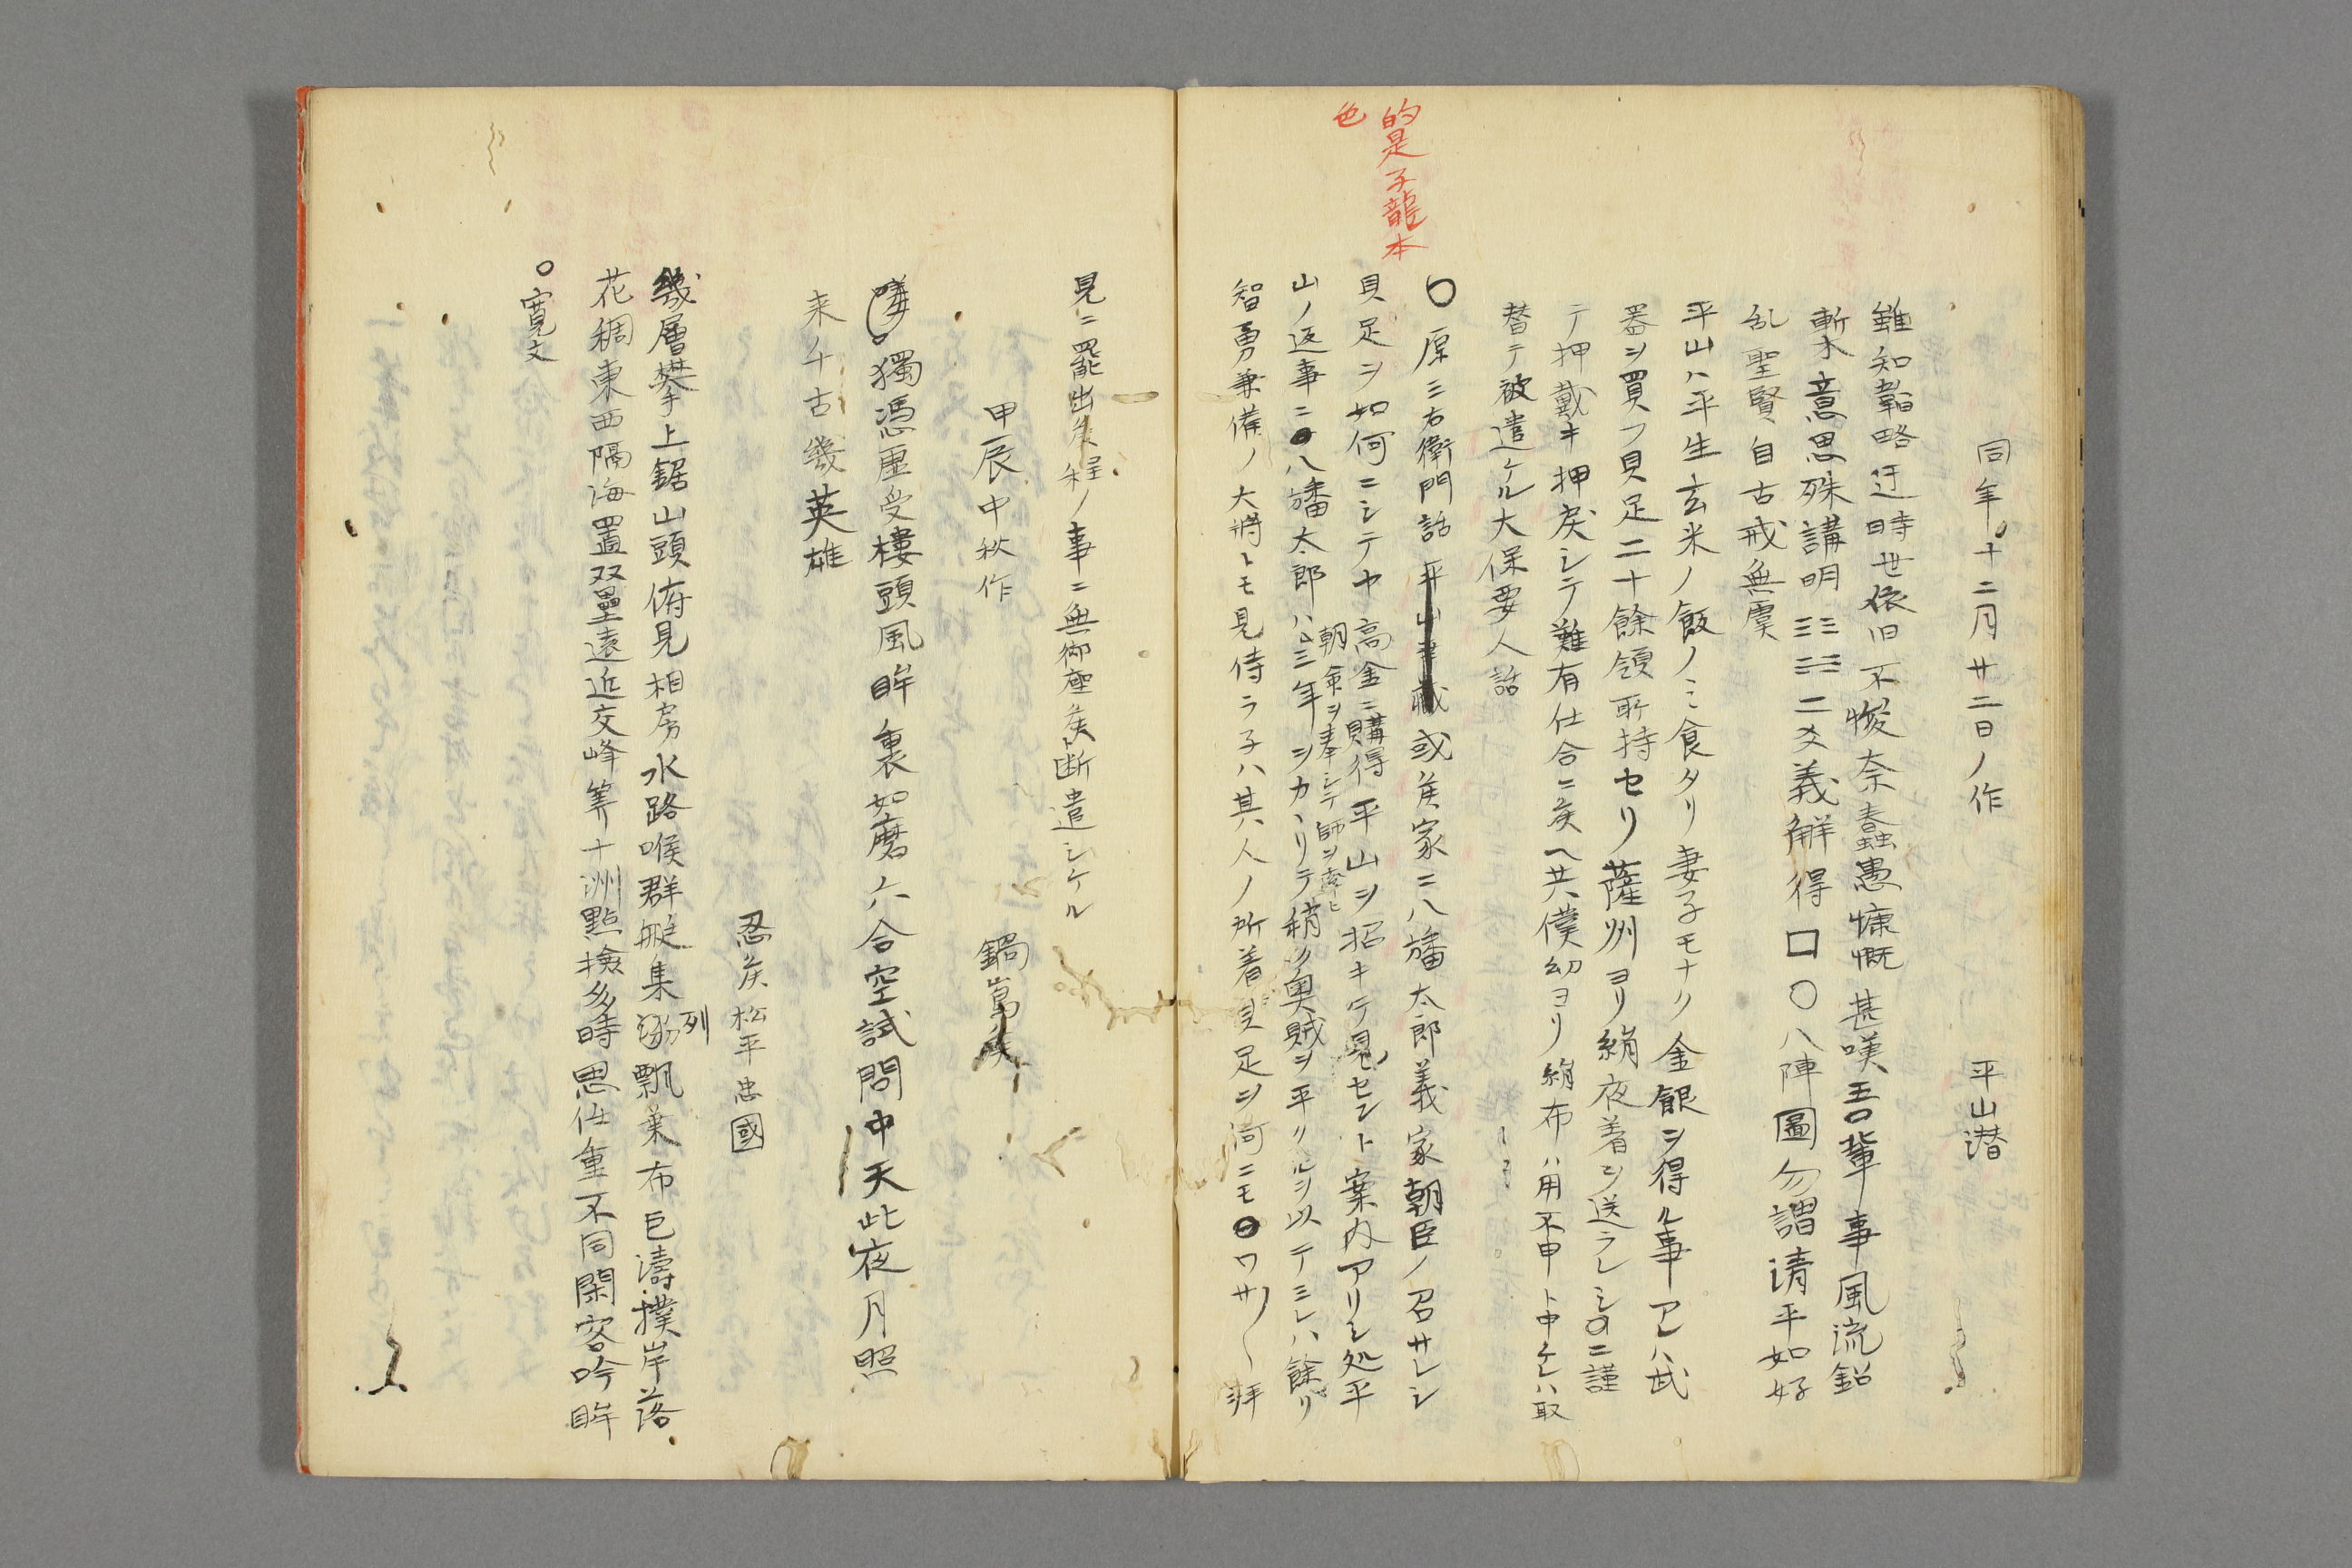 同年十二月廿二日ノ作 平山潜
雖知韜略迂時世依旧不悛奈蠢愚慷慨甚嘆吾輩事風流鋁
斬木意思殊講明☷☵二爻義解得□○八陣圖勿謂清平如好
乱聖賢自古戒無虞
平山ハ平生玄米ノ飯ノミ食タリ妻子モナク金銀ヲ得ル事アレハ武
器ヲ買フ具足二十餘領所持セリ薩州ヨリ絹夜着ヲ送ラレシニ謹
テ押戴キ押戻シテ難有仕合ニ矦ヘ共僕幼ヨリ絹布ハ用不申ト申ケレハ取
替テ被遣ケル大保要人話
的是子龍本
色
○原三右衛門話 或矦家ニ八旛太郎義家朝臣ノ召サレシ
具足ヲ如何ニシテヤ高金ニ購得平山ヲ招キテ見セント案内アリシ処平
朝命ヲ奉シテ師ヲ率ヒ
山ノ返事ニ八旛太郎ハ三年ヲカヽリテ稍ク奥賊ヲ平ケルヲ以テミレハ餘リ
智勇兼備ノ大將トモ見侍ラ子ハ其人ノ所着具足ヲ何ニモワサ〱拜
見ニ罷出矦程ノ事ニ無御座矦断遣シケル
甲辰中秋作 鍋嶌矦
獨憑虚受樓頭風眸裏如磨六合空試問中天此夜月照
来千古幾英雄
忍矦松平忠國
幾層攀上鋸山頭俯見相房水路喉群艇集列飄葉布巨濤撲岸落
花稠東西隔海置双壘遠近交峰筭十洲點撿多時思仕重不同閑容吟眸
○寛文